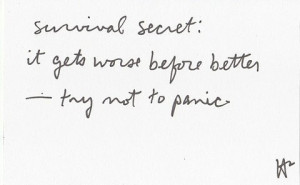 survival secret:
it gets worse before better
— try not to panic.